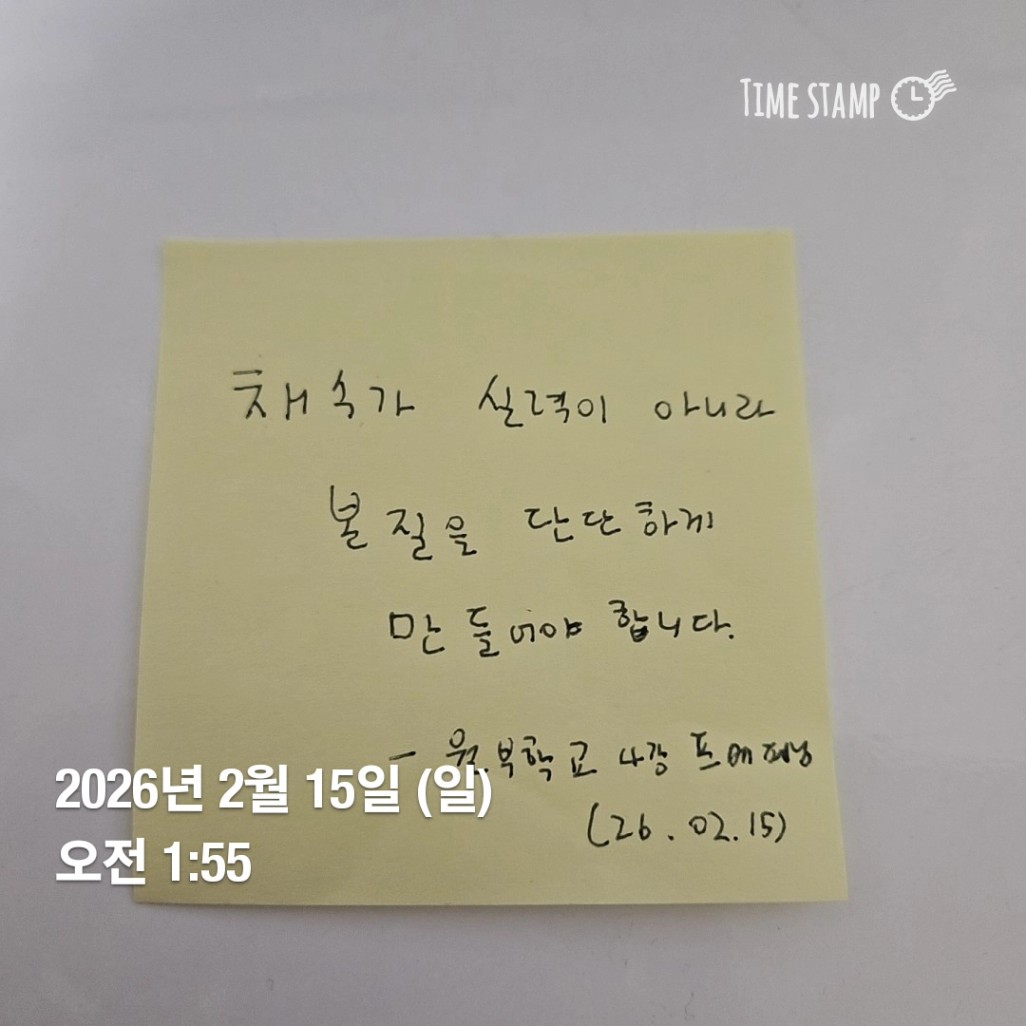 TIME STAMP
채수가 실력이 아니라
본질을 단단하게
만들어야 합니다.
- 월부학교 4강 프메퍼님
(26.02.15)
2026년 2월 15일 (일)
오전 1:55